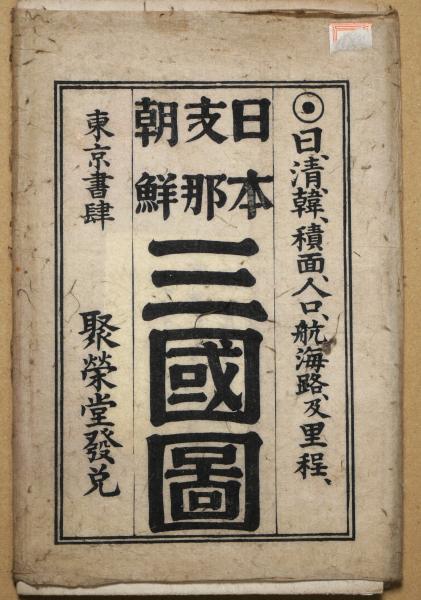 ◉日、清、韓、積面、人口、航海路、及里程、
日本
支那
朝鮮
三國圖
東京書肆
聚榮堂發兌